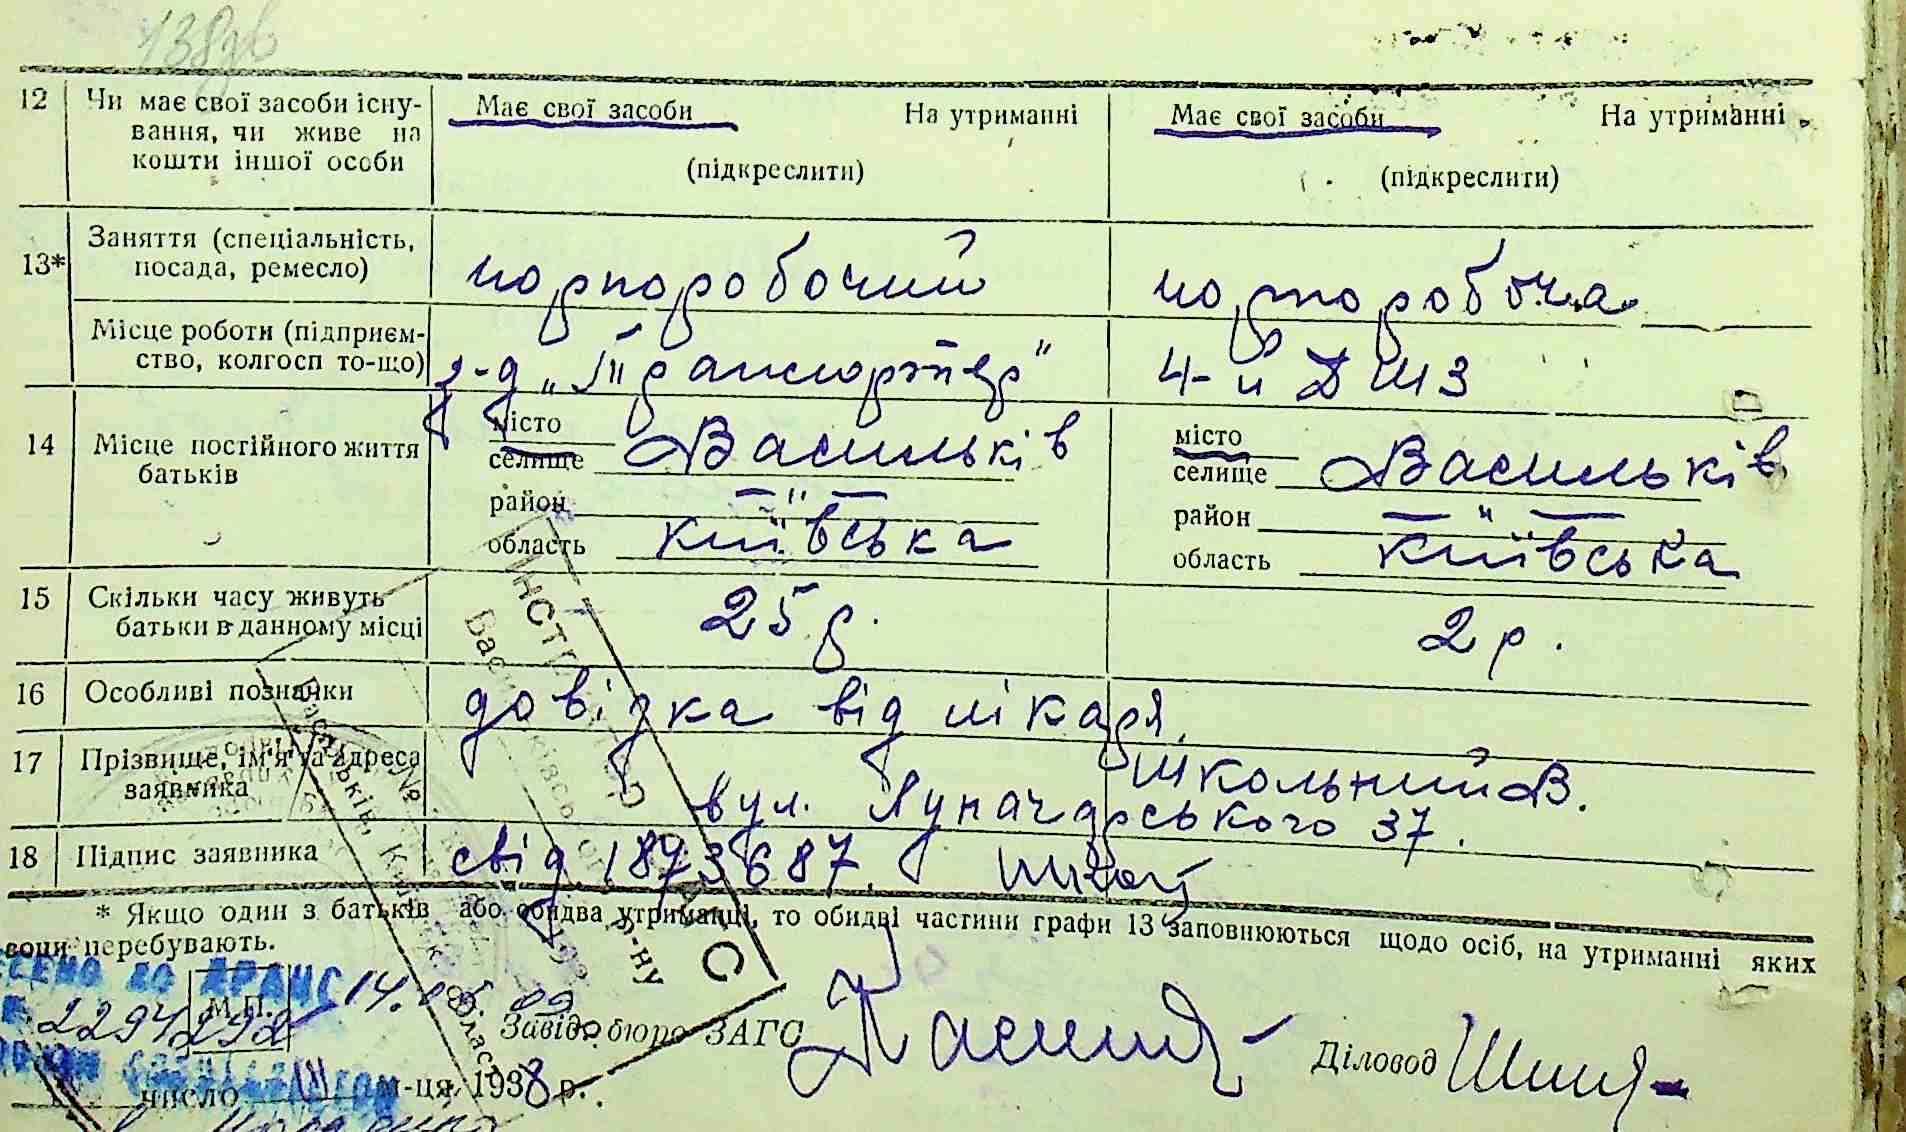 12 Чи має свої засоби існу-
вання, чи живе на
кошти іншої особи
Має свої засоби На утриманні
(підкреслити)
Має свої засоби На утриманні
(підкреслити)
13* Заняття (спеціальність,
посада, ремесло)
чорноробочий
чорноробоча
Місце роботи (підприєм-
ство, колгосп то-що)
з-д „Транспортер"
4-й ДШЗ
14 Місце постійного життя
батьків
місто
селище Васильків
район — " —
область Київська
місто
селище Васильків
район — " —
область Київська
15 Скільки часу живуть
батьки в данному місці
25 р.
2 р.
16 Особливі позначки
довідка від лікаря
17 Прізвище, ім'я та адреса
заявника
Школьний В.
вул. Луначарського 37.
18 Підпис заявника
свід. 1873687.
* Якщо один з батьків або обидва утриманці, то обидві частини графи 13 заповнюються щодо осіб, на утриманні яких
вони перебувають.
ДО ДРАЦС
М.П.
Завід. бюро ЗАГС
Діловод
число м-ця 1938 р.